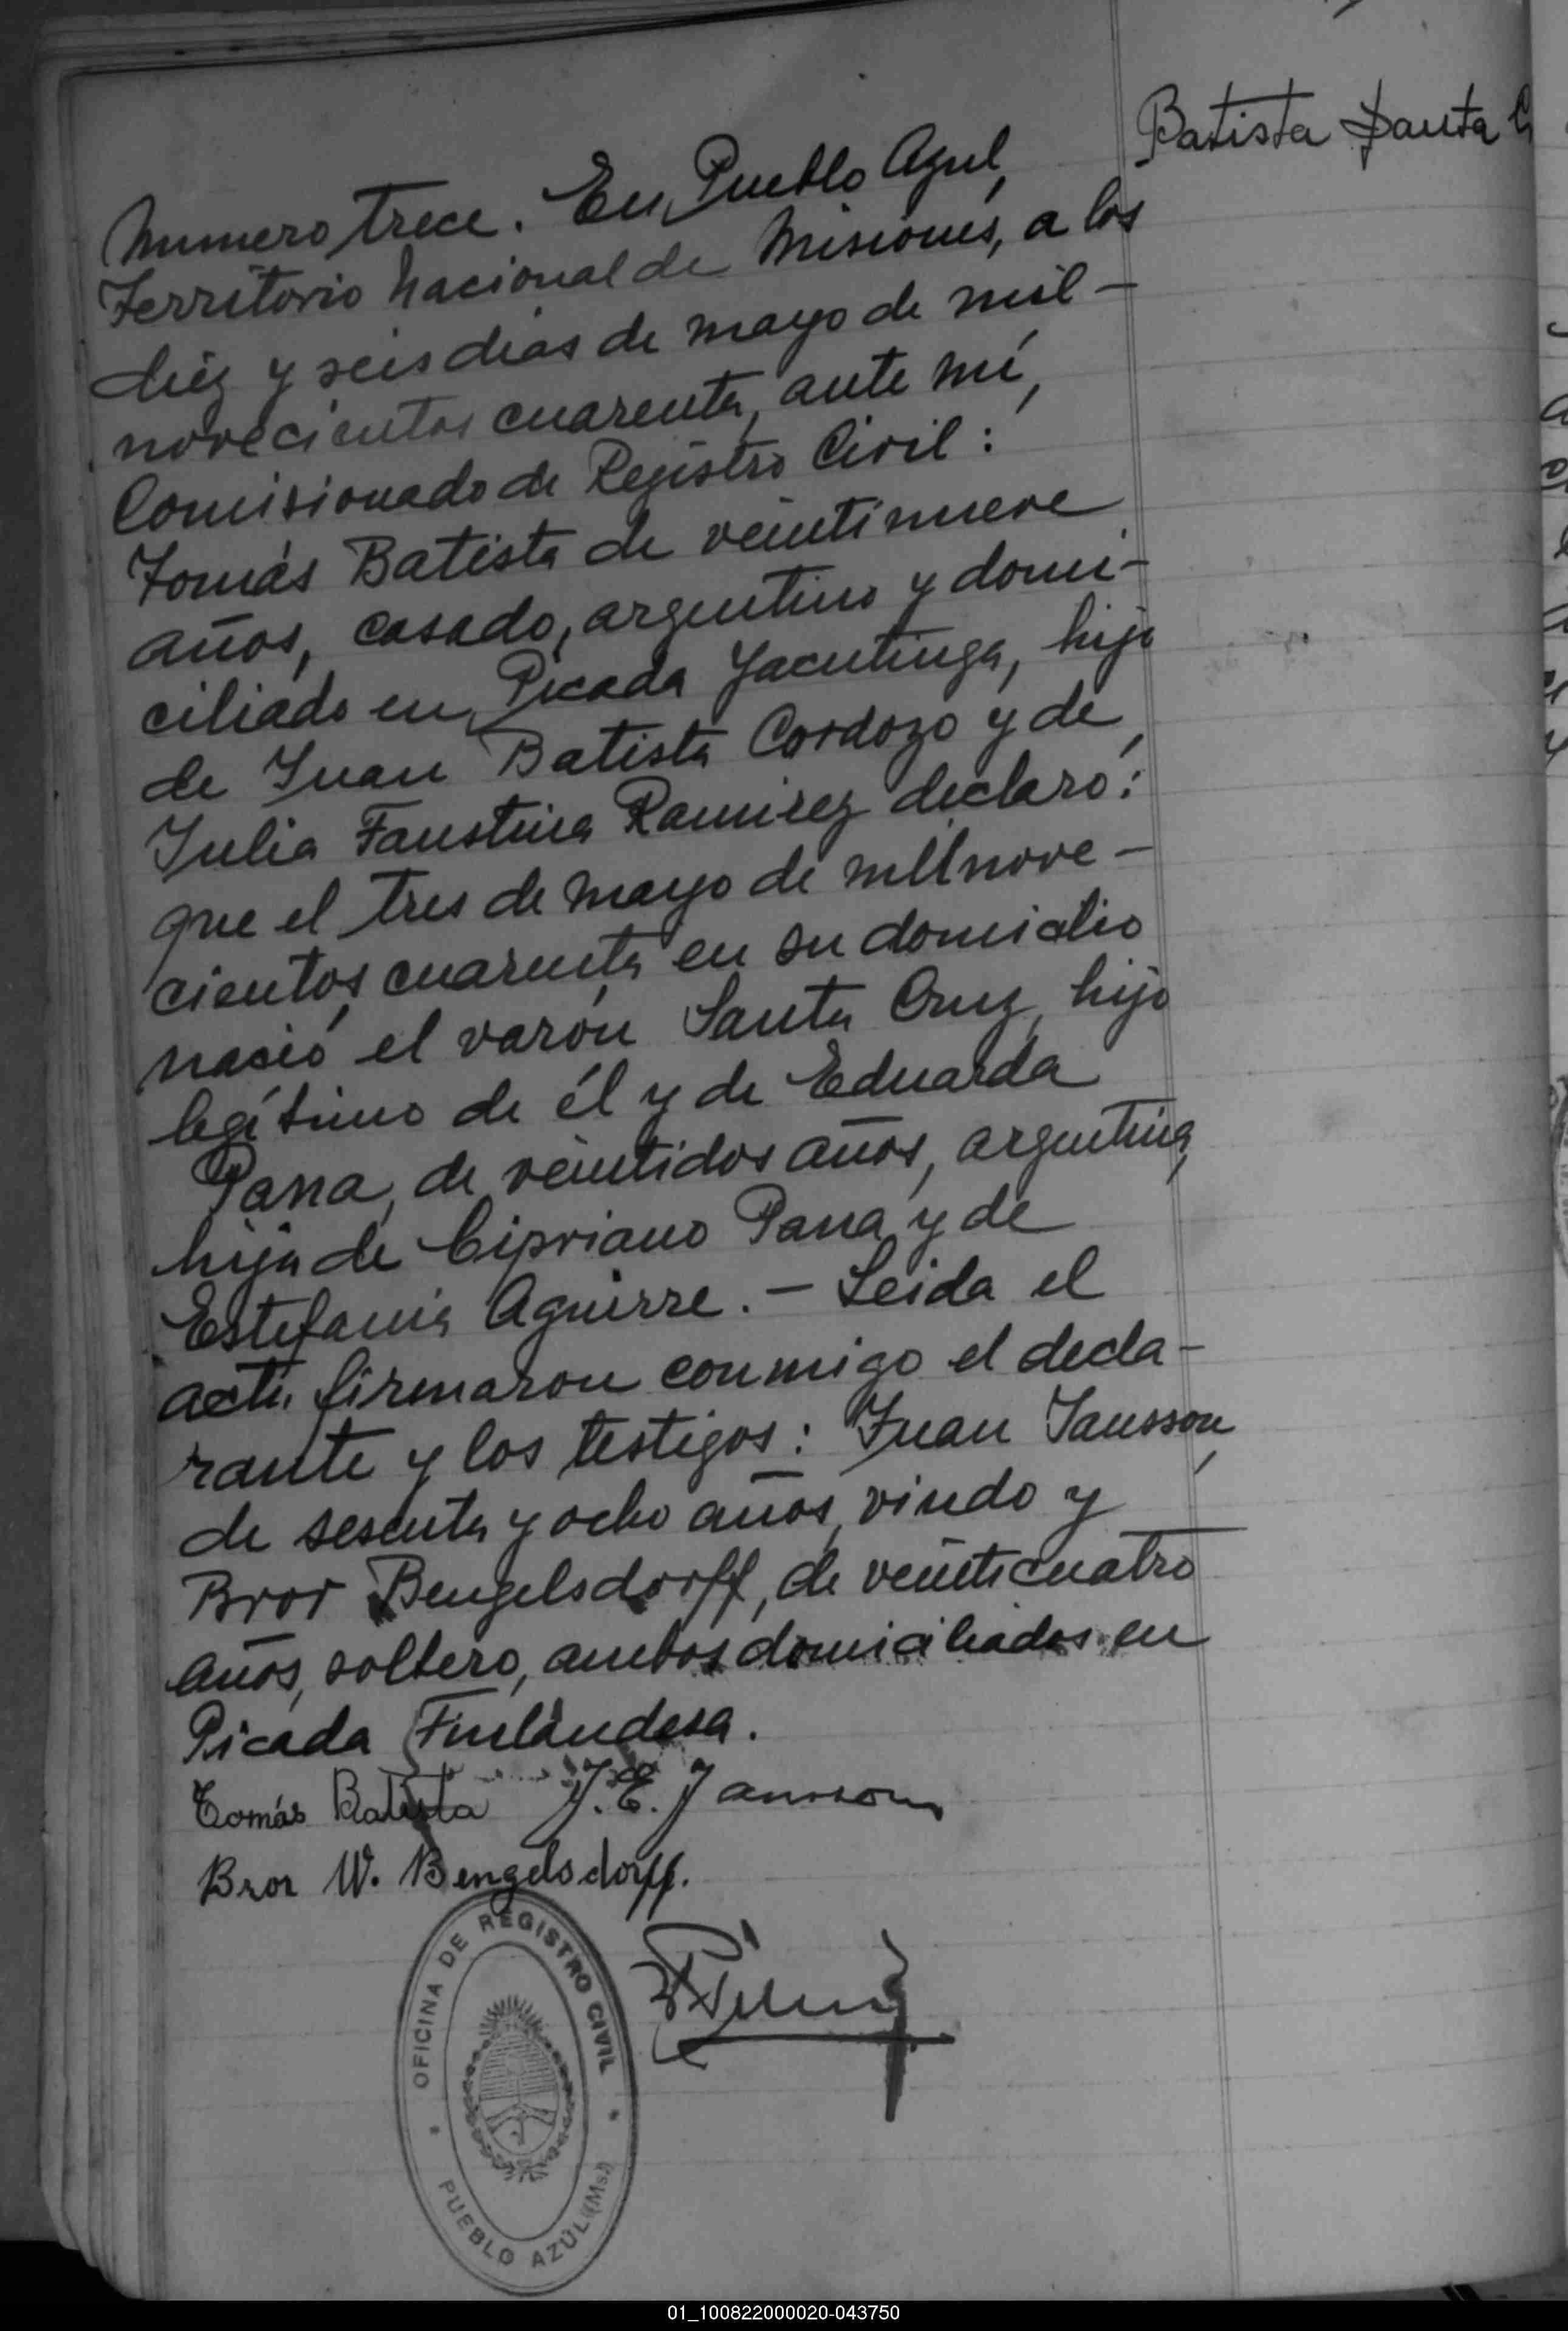 Batista Santa C
Numero trece. En Pueblo Azul,
Territorio Nacional de Misiones, a los
diéz y seis dias de mayo de mil-
novecientos cuarenta, ante mí,
Comisionado de Registro Civil:
Tomás Batista de veintinueve
años, casado, argentino y domi-
ciliado en Picada Yacutinga, hijo
de Juan Batista Cordozo y de
Julia Faustina Ramirez declaró:
que el tres de mayo de mil nove-
cientos cuarenta en su domicilio
nació el varón Santa Cruz, hijo
legítimo de él y de Eduarda
de veintidos años, argentina,
hija de Cipriano y de
Estefania Aguirre.- Leida el
acta firmaron conmigo el decla-
rante y los testigos: Juan Jansson,
de sesenta y ocho años, viudo y
Bror Bengelsdorff, de veinticuatro
años, soltero, ambos domiciliados en
Picada Finlandesa.
Tomás Batista J.E. Jansson
Bror W. Bengelsdorff.
OFICINA DE REGISTRO CIVIL
* PUEBLO AZUL (Ms.) *
01_100822000020-043750